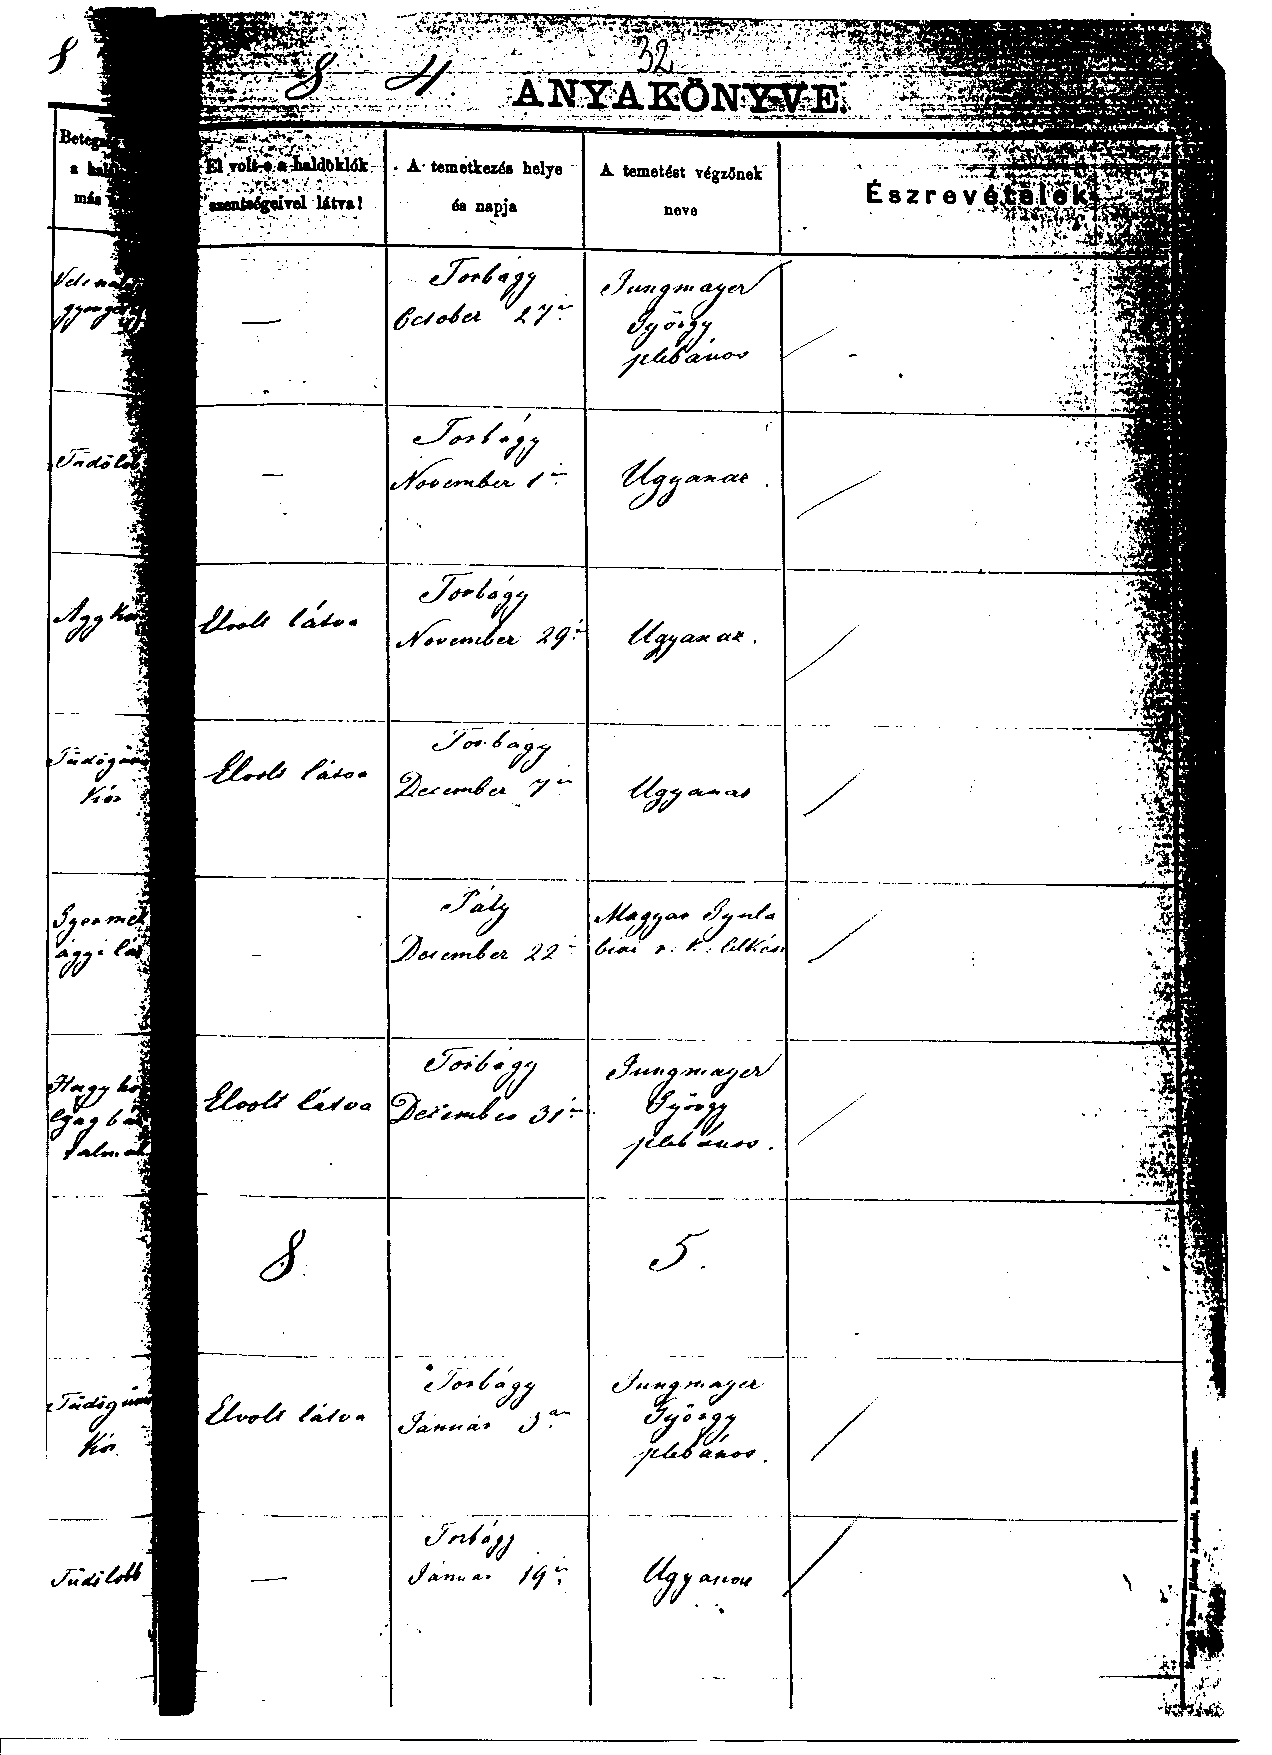 8
8 4. 32
ANYAKÖNYVE.
El volt-e a haldoklók szentségeivel látva?
A temetkezés helye és napja
A temetést végzőnek neve
Észrevételek
—
Torbágy
October 27én
Jungmayer
György
plebános
Tüdőlob
—
Torbágy
November 1én
Ugyanaz.
Elvolt látva
Torbágy
November 29én
Ugyanaz.
Kór
Elvolt látva
Torbágy
December 7én
Ugyanaz
—
Páty
December 22én
Magyar Gyula
biai r. k. lelkész
Elvolt látva
Torbágy
December 31én
Jungmayer
György
plebános.
8. 5.
Kór
Elvolt látva
Torbágy
Január 3án
Jungmayer
György
plebános.
Tüdőlobb
—
Torbágy
Január 19én
Ugyanaz